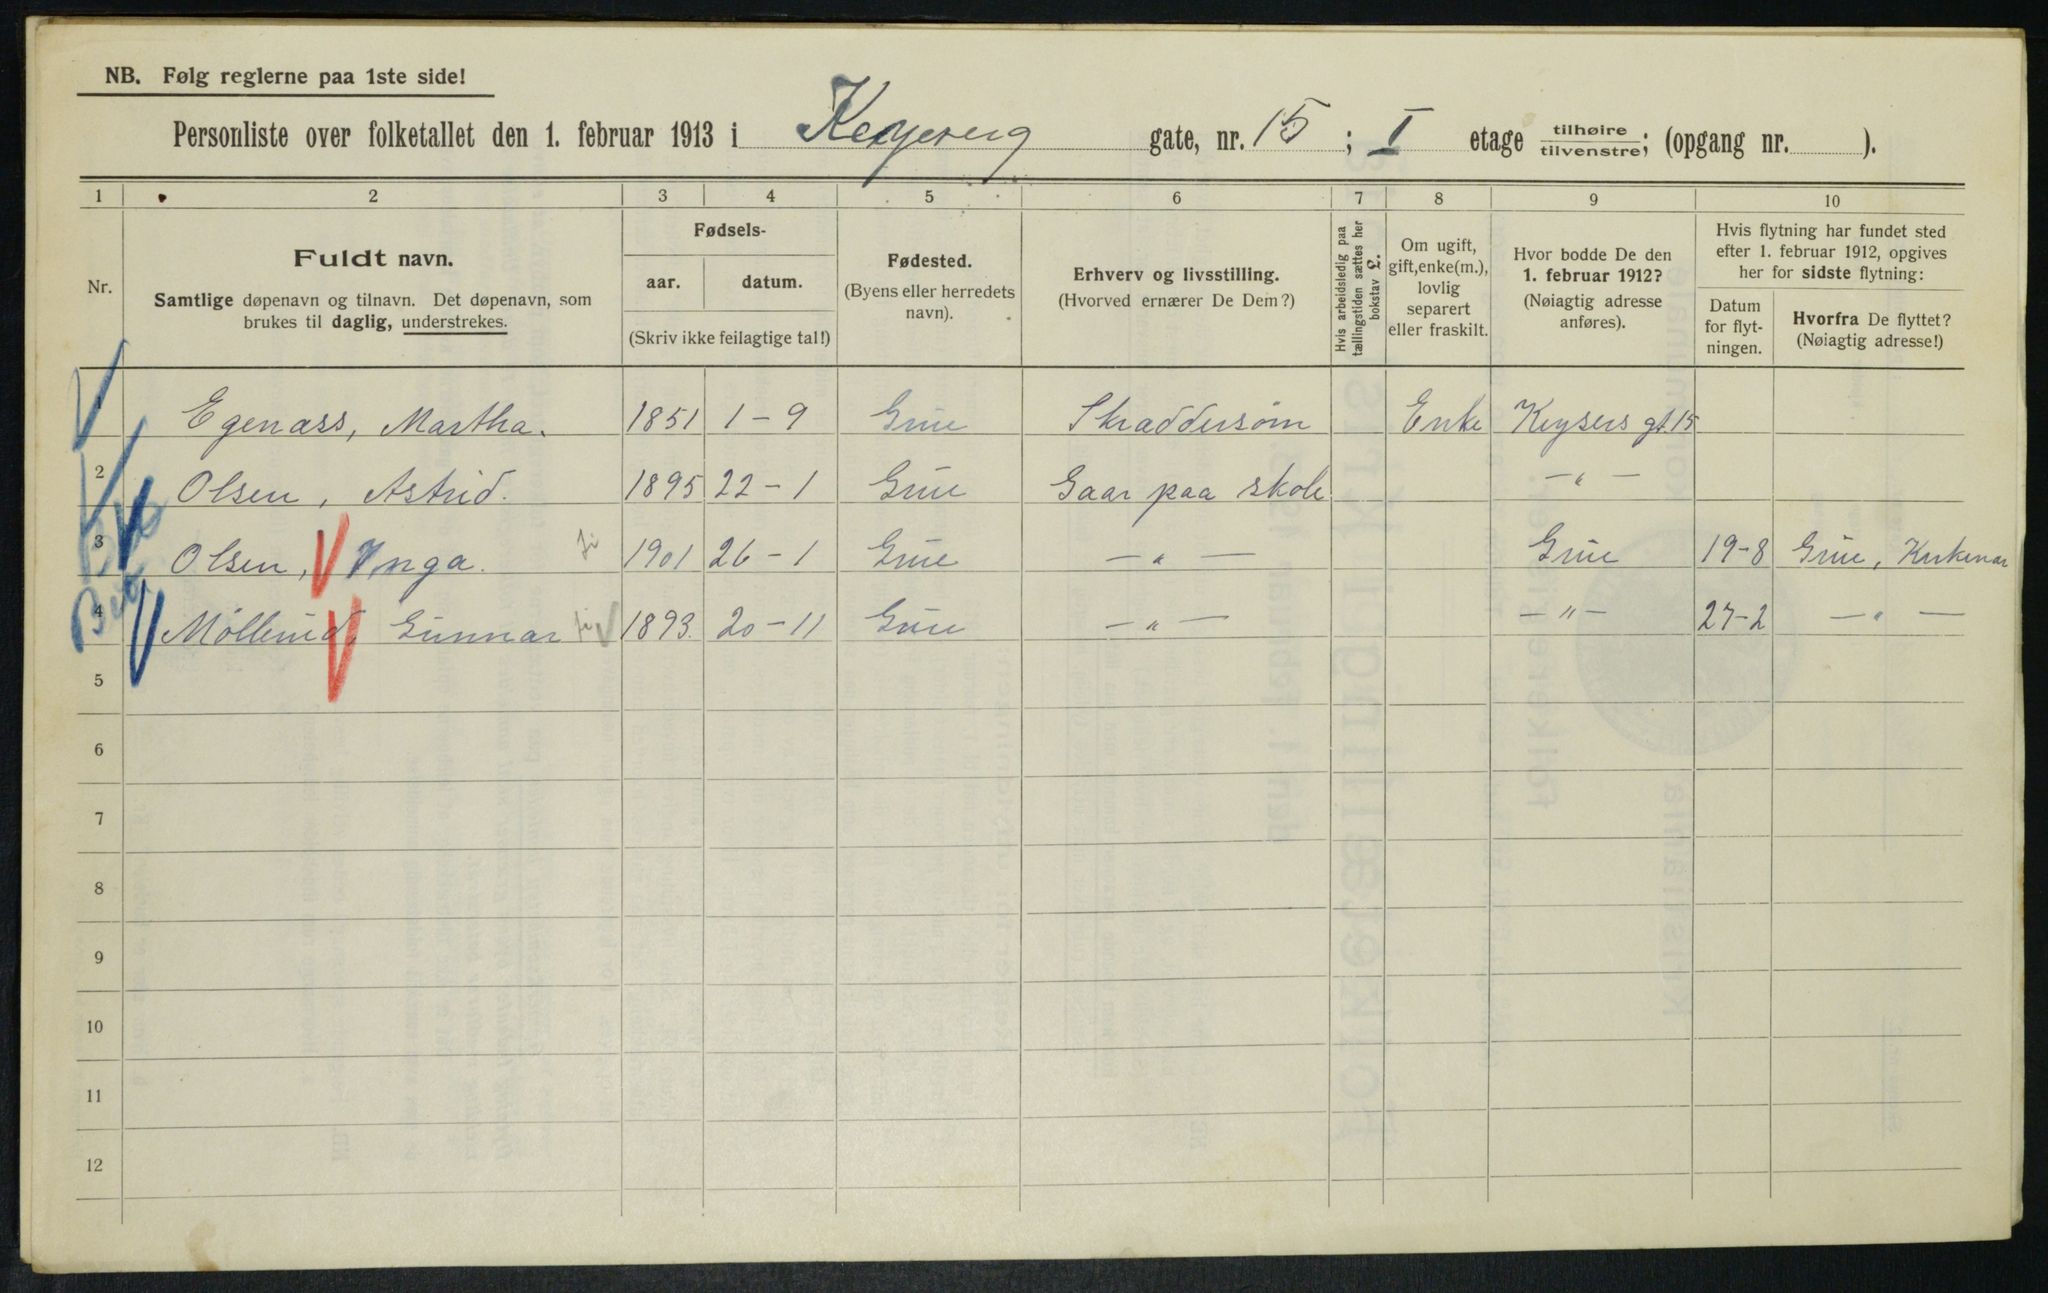 NB. Følg reglerne paa 1ste side!
Personliste over folketallet den 1. februar 1913 i gate, nr. 15; I etage tilhøire/tilvenstre; (opgang nr. ).
1 2 3 4 5 6 7 8 9 10
Nr.
Fuldt navn.
Samtlige døpenavn og tilnavn. Det døpenavn, som
brukes til daglig, understrekes.
Fødsels-
aar. datum.
(Skriv ikke feilagtige tal!)
Fødested.
(Byens eller herredets
navn).
Erhverv og livsstilling.
(Hvorved ernærer De Dem?)
Hvis arbeidsledig paa
tællingstiden sættes her
bokstav L.
Om ugift,
gift, enke(m.),
lovlig
separert
eller fraskilt.
Hvor bodde De den
1. februar 1912?
(Nøiagtig adresse
anføres).
Hvis flytning har fundet sted
efter 1. februar 1912, opgives
her for sidste flytning:
Datum
for flyt-
ningen.
Hvorfra De flyttet?
(Nøiagtig adresse!)
1 Egenæss, Martha. 1851 1-9 Grue Skraddersøm Enke Keysers gt. 15
2 Olsen, Astrid. 1895 22-1 Grue Gaar paa skole -"-
3 Olsen, Inga. 1901 26-1 Grue -"- Grue 19-8 Grue, Kirkenær
4 Møllerud, Gunnar 1893. 20-11 Grue -"- -"- 27-2 -"-
5
6
7
8
9
10
11
12